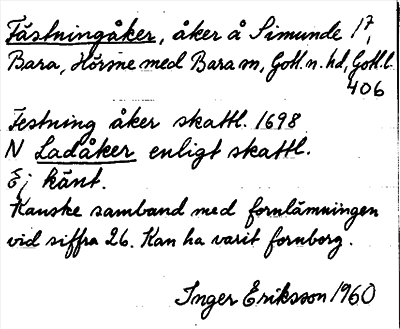 Fästningåker, åker å Simunde 17,
Bara, Hörsne med Bara sn, Gotl. n. hd, Gotl. l
406
Festning åker skattl. 1698
N Ladåker enligt skattl.
Ej känt.
Kanske samband med fornlämningen
vid siffra 26. Kan ha varit fornborg.
Inger Eriksson 1960